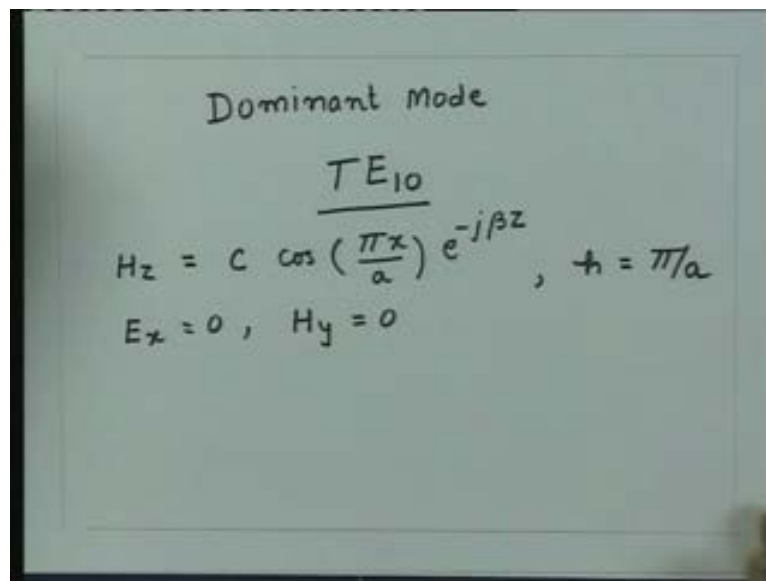 Dominant Mode
TE₁₀
Hz = C cos (πx/a) e^-jβz , h = π/a
Ex = 0 , Hy = 0